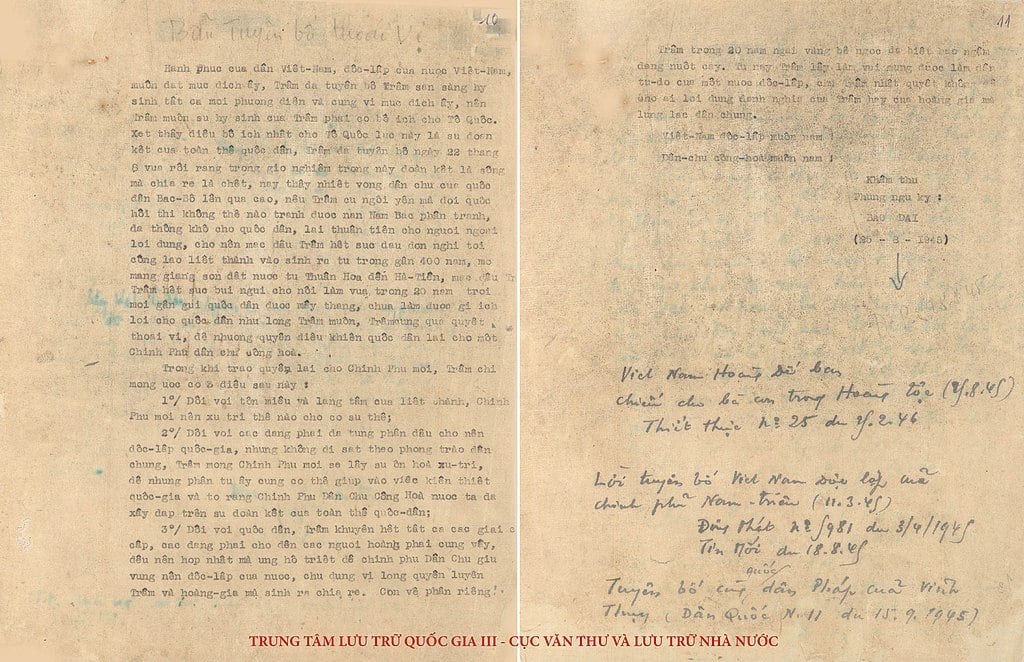 10
Bản Tuyên bố thoái Vị
Hanh phuc cua dân Viêt-Nam, dôc-lâp cua nuoc Viêt-Nam,
muôn dat muc dich ây, Trâm da tuyên bô Trâm san sàng hy
sinh tât ca moi phuong diên và cung vi muc dich ây, nên
Trâm muôn su hy sinh cua Trâm phai co bô ich cho Tô Quôc.
Xet thây diêu bô ich nhât cho Tô Quôc luc này là su doan
kêt cua toàn thê quôc dân, Trâm da tuyên bô ngày 22 thang
8 vua rôi rang trong gio nghiêm trong này doàn kêt là sông
mà chia re là chêt, nay thây nhiêt vong dân chu cua quôc
dân Bac-Bô lên qua cao, nêu Trâm cu ngôi yên mà doi quôc
hôi thi không thê nào tranh duoc nan Nam Bac phân tranh,
da thông khô cho quôc dân, lai thuân tiên cho nguoi ngoai
loi dung, cho nên mac dâu Trâm hêt suc dau don nghi toi
công lao liêt thành vào sinh ra tu trong gân 400 nam, mo
mang giang son dât nuoc tu Thuân Hoa dên Hà-Tiên, mac dâu
Trâm hêt suc bui ngui cho nôi làm vua trong 20 nam troi
moi gân gui quôc dân duoc mây thang, chua làm duoc gi ich
loi cho quôc dân nhu long Trâm muôn, Trâm cung qua quyêt
thoai vi, dê nhuong quyên diêu khiên quôc dân lai cho môt
Chinh Phu dân chu công hoà.
Trong khi trao quyên lai cho Chinh Phu moi, Trâm chi
mong uoc co 3 diêu sau này :
1°/ Dôi voi tôn miêu và lang tâm cua liêt thành, Chinh
Phu moi nên xu tri thê nào cho co su thê;
2°/ Dôi voi cac dang phai da tung phân dâu cho nên
dôc-lâp quôc-gia, nhung không di sat theo phong trào dân
chung, Trâm mong Chinh Phu moi se lây su ôn hoà xu-tri,
dê nhung phân tu ây cung co thê giup vào viêc kiên thiêt
quôc-gia và to rang Chinh Phu Dân Chu Công Hoà nuoc ta da
xây dap trên su doàn kêt cua toàn thê quôc-dân;
3°/ Dôi voi quôc dân, Trâm khuyên hêt tât ca cac giai
câp, cac dang phai cho dên cac nguoi hoàng phai cung vây,
dêu nên hop nhât mà ung hô triêt dê chinh phu Dân Chu giu
vung nên dôc-lâp cua nuoc, chu dung vi long quyên luyên
Trâm và hoàng-gia mà sinh ra chia re. Con vê phân riêng
11
Trâm trong 20 nam ngai vàng bê ngoc da biêt bao ngâm
dang nuôt cay. Tu nay Trâm lây làm vui mung duoc làm dân
tu-do cua môt nuoc dôc-lâp, chu Trâm nhât quyêt không
cho ai loi dung danh nghia cua Trâm hay cua hoàng gia mà
lung lac dân chung.
Viêt-Nam dôc-lâp muôn nam :
Dân-chu công-hoà muôn nam :
Khâm thu
Phung ngu ky :
BAO DAI
(25 - 8 - 1945)
Việt Nam Hoàng Đế ban
chiếu cho bà con trong Hoàng tộc (25.8.45)
Thiết thực Nº 25 du 25.2.46
Lời tuyên bố Việt Nam Độc lập của
chính phủ Nam-triều (11.3.45)
Đông Phát Nº 5981 du 3/4/1945
Tin Mới du 18.8.45
Tuyên bố cùng quốc dân Pháp của Vĩnh
Thụy (Dân Quốc N. 11 du 15.9.1945)
TRUNG TÂM LƯU TRỮ QUỐC GIA III - CỤC VĂN THƯ VÀ LƯU TRỮ NHÀ NƯỚC